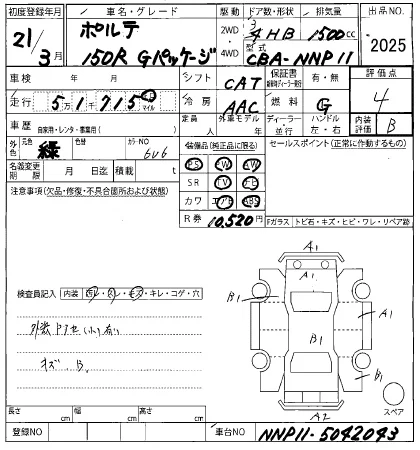 初度登録年月 車名・グレード 駆動 ドア数・形状 排気量 出品NO
21年/3月 ポルテ 2WD 3/4HB 1500cc 2025
150R Gパッケージ 4WD 型式 CBA-NNP11
車検 年 月 シフト CAT 保証書 有・無 評価点
走行 5万1千715km マイル 冷房 AAC 燃料 G 4
車歴 自家用・レンタ・事業用( ) 定員 人 外車モデル 年 ディーラー・並行 ハンドル 左・右 内装評価 B
外色 元色 緑 色替 カラーNO 6V6 装備品(純正品に限る) セールスポイント(正常に作動するもの)
PS CW AW
名義変更期限 月 日迄 積載 t SR TV ナビ
注意事項(欠品・修復・不具合箇所および状態) カワ エアB ABS
R券 10,520円 Fガラス トビ石・キズ・ヒビ・ワレ・リペア跡
A1
A1
検査員記入 内装 ヨゴレ・スレ・キズ・キレ・コゲ・穴
B1 A1
B1
キズ. B.
B1
スペア
A2
長さ cm 幅 cm 高さ cm
登録NO 車台NO NNP11-5042043